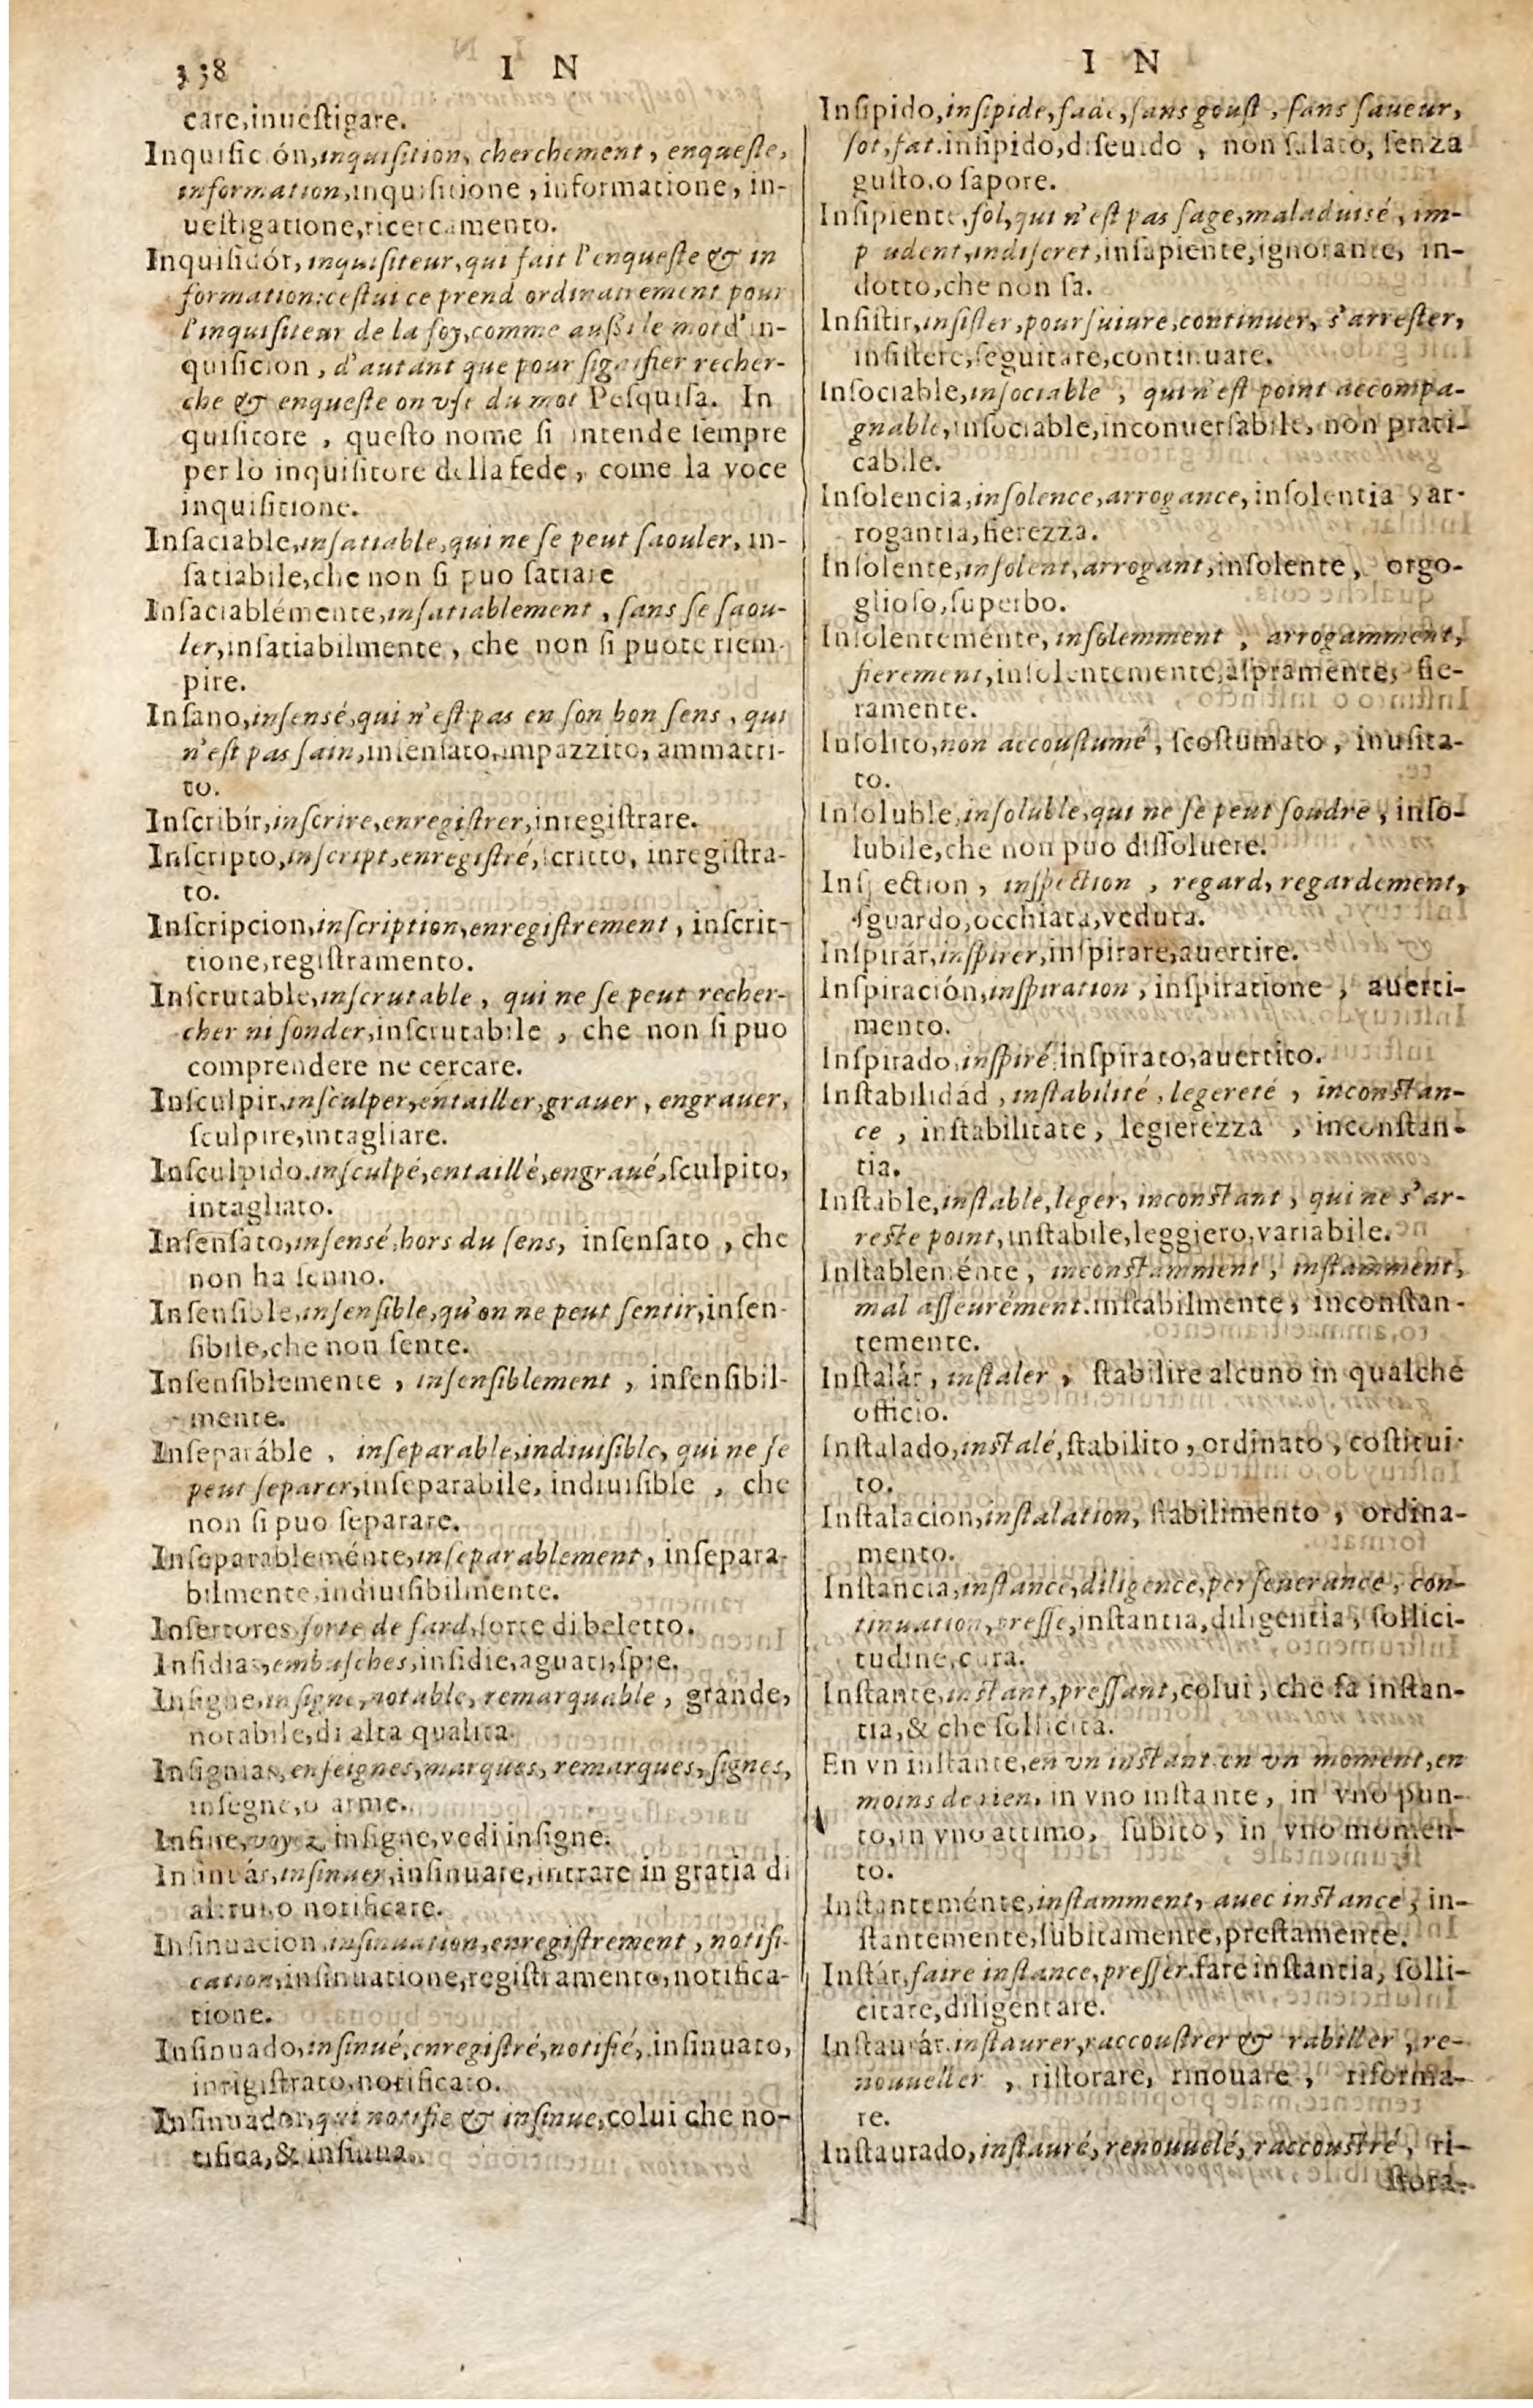 338 I N
care,inueſtigare.
Inquiſición,inquiſition, cherchement, enqueſte,
information,inquiſitione, informatione, in-
ueſtigatione,ricercamento.
Inquiſidór, inquiſiteur,qui fait l'enqueſte & in
formation:ceſtui ce prend ordinairement pour
l'inquiſiteur de la foy,comme auſſi le mot d'in-
quiſicion, d'autant que pour ſignifier recher-
che & enqueſte on vſe du mot Peſquiſa. In
quiſitore, queſto nome ſi intende ſempre
per lo inquiſitore della fede, come la voce
inquiſitione.
Inſaciable,inſatiable,qui ne ſe peut ſaouler, in-
ſatiabile,che non ſi puo ſatiare
Inſaciableménte,inſatiablement, ſans ſe ſaou-
ler,inſatiabilmente, che non ſi puote riem-
pire.
Inſano,inſensé,qui n'eſt pas en ſon bon ſens, qui
n'eſt pas ſain,inſenſato,impazzito, ammatti-
to.
Inſcribír,inſcrire,enregiſtrer,inregiſtrare.
Inſcripto,inſcript,enregiſtré,ſcritto, inregiſtra-
to.
Inſcripcion,inſcription,enregiſtrement, inſcrit-
tione,regiſtramento.
Inſcrutable,inſcrutable, qui ne ſe peut recher-
cher ni ſonder,inſcrutabile, che non ſi puo
comprendere ne cercare.
Inſculpir,inſculper,entailler,grauer, engrauer,
ſculpire,intagliare.
Inſculpido,inſculpé,entaillé,engraué,ſculpito,
intagliato.
Inſenſato,inſensé,hors du ſens, inſenſato, che
non ha ſenno.
Inſenſible,inſenſible,qu'on ne peut ſentir,inſen-
ſibile,che non ſente.
Inſenſiblemente, inſenſiblement, inſenſibil-
mente.
Inſeparáble, inſeparable,indiuiſible, qui ne ſe
peut ſeparer,inſeparabile, indiuiſible, che
non ſi puo ſeparare.
Inſeparableménte,inſeparablement, inſepara-
bilmente,indiuiſibilmente.
Inſertores ſorte de fard,ſorte di beletto.
Inſidias,embuſches,inſidie,aguati,ſpie.
Inſigne,inſigne,notable,remarquable, grande,
notabile,di alta qualita.
Inſignias,enſeignes,marques,remarques,ſignes,
inſegne,o arme.
Inſine,voyez inſigne,vedi inſigne.
Inſinuár,inſinuer,inſinuare,intrare in gratia di
altruno notificare.
Inſinuacion,inſinuation,enregiſtrement, notifi-
cation,inſinuatione,regiſtramento,notifica-
tione.
Inſinuado,inſinué,enregiſtré,notifié,inſinuato,
inrigiſtrato,notificato.
Inſinuador,qui notifie & inſinue,colui che no-
tifica,& inſinua.
I N
Inſipido,inſipide,fade,ſans gouſt, ſans ſaueur,
ſot,fat.inſipido,diſeuido, non ſalato, ſenza
guſto,o ſapore.
Inſipiente,fol,qui n'eſt pas ſage,maladuisé, im-
prudent,indiſcret,inſapiente,ignorante, in-
dotto,che non ſa.
Inſiſtir,inſiſter,pourſuiure,continuer, s'arreſter,
inſiſtere,ſeguitare,continuare.
Inſociable,inſociable, qui n'eſt point accompa-
gnable,inſociable,inconuerſabile, non prati-
cabile.
Inſolencia,inſolence,arrogance,inſolentia, ar-
rogantia,fierezza.
Inſolente,inſolent,arrogant,inſolente, orgo-
glioſo,ſuperbo.
Inſolenteménte, inſolemment, arrogamment,
fierement,inſolentemente,aſpramente, fie-
ramente.
Inſolito,non accouſtumé, ſcoſtumato, inuſita-
to.
Inſoluble,inſoluble,qui ne ſe peut ſoudre, inſo-
lubile,che non puo diſſoluere.
Inſpection, inſpection, regard, regardement,
ſguardo,occhiata,veduta.
Inſpirár,inſpirer,inſpirare,auertire.
Inſpiración,inſpiration, inſpiratione, auerti-
mento.
Inſpirado,inſpiré,inſpirato,auertito.
Inſtabilidád, inſtabilité, legereté, inconſtan-
ce, inſtabilitate, legierezza, inconſtan-
tia.
Inſtable,inſtable,leger, inconſtant, qui ne s'ar-
reſte point,inſtabile,leggiero,variabile.
Inſtableménte, inconſtamment, inſtamment,
mal aſſeurément.inſtabilmente, inconſtan-
temente.
Inſtalár, inſtaler, ſtabilire alcuno in qualche
officio.
Inſtalado,inſtalé,ſtabilito, ordinato, coſtitui-
to.
Inſtalacion,inſtalation, ſtabilimento, ordina-
mento.
Inſtancia,inſtance,diligence,perſeuerance, con-
tinuation,preſſe,inſtantia,diligentia, ſollici-
tudine,cura.
Inſtante,inſtant,preſſant,colui, che fa inſtan-
tia,& che ſollicita.
En vn inſtante,en vn inſtant en vn moment,en
moins de rien, in vno inſtante, in vno pun-
to,in vno attimo, ſubito, in vno momen-
to.
Inſtanteménte,inſtamment, auec inſtance, in-
ſtantemente,ſubitamente,preſtamente.
Inſtár,faire inſtance,preſſer.fare inſtantia, ſolli-
citare,diligentare.
Inſtaurár,inſtaurer,raccouſtrer & rabiller, re-
nouueller, riſtorare, rinouare, riforma-
re.
Inſtaurado,inſtauré,renouuelé,raccouſtré, ri-
ſtora-